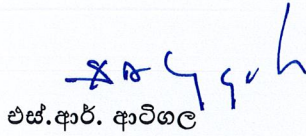 එස්.ආර්. ආටිගල